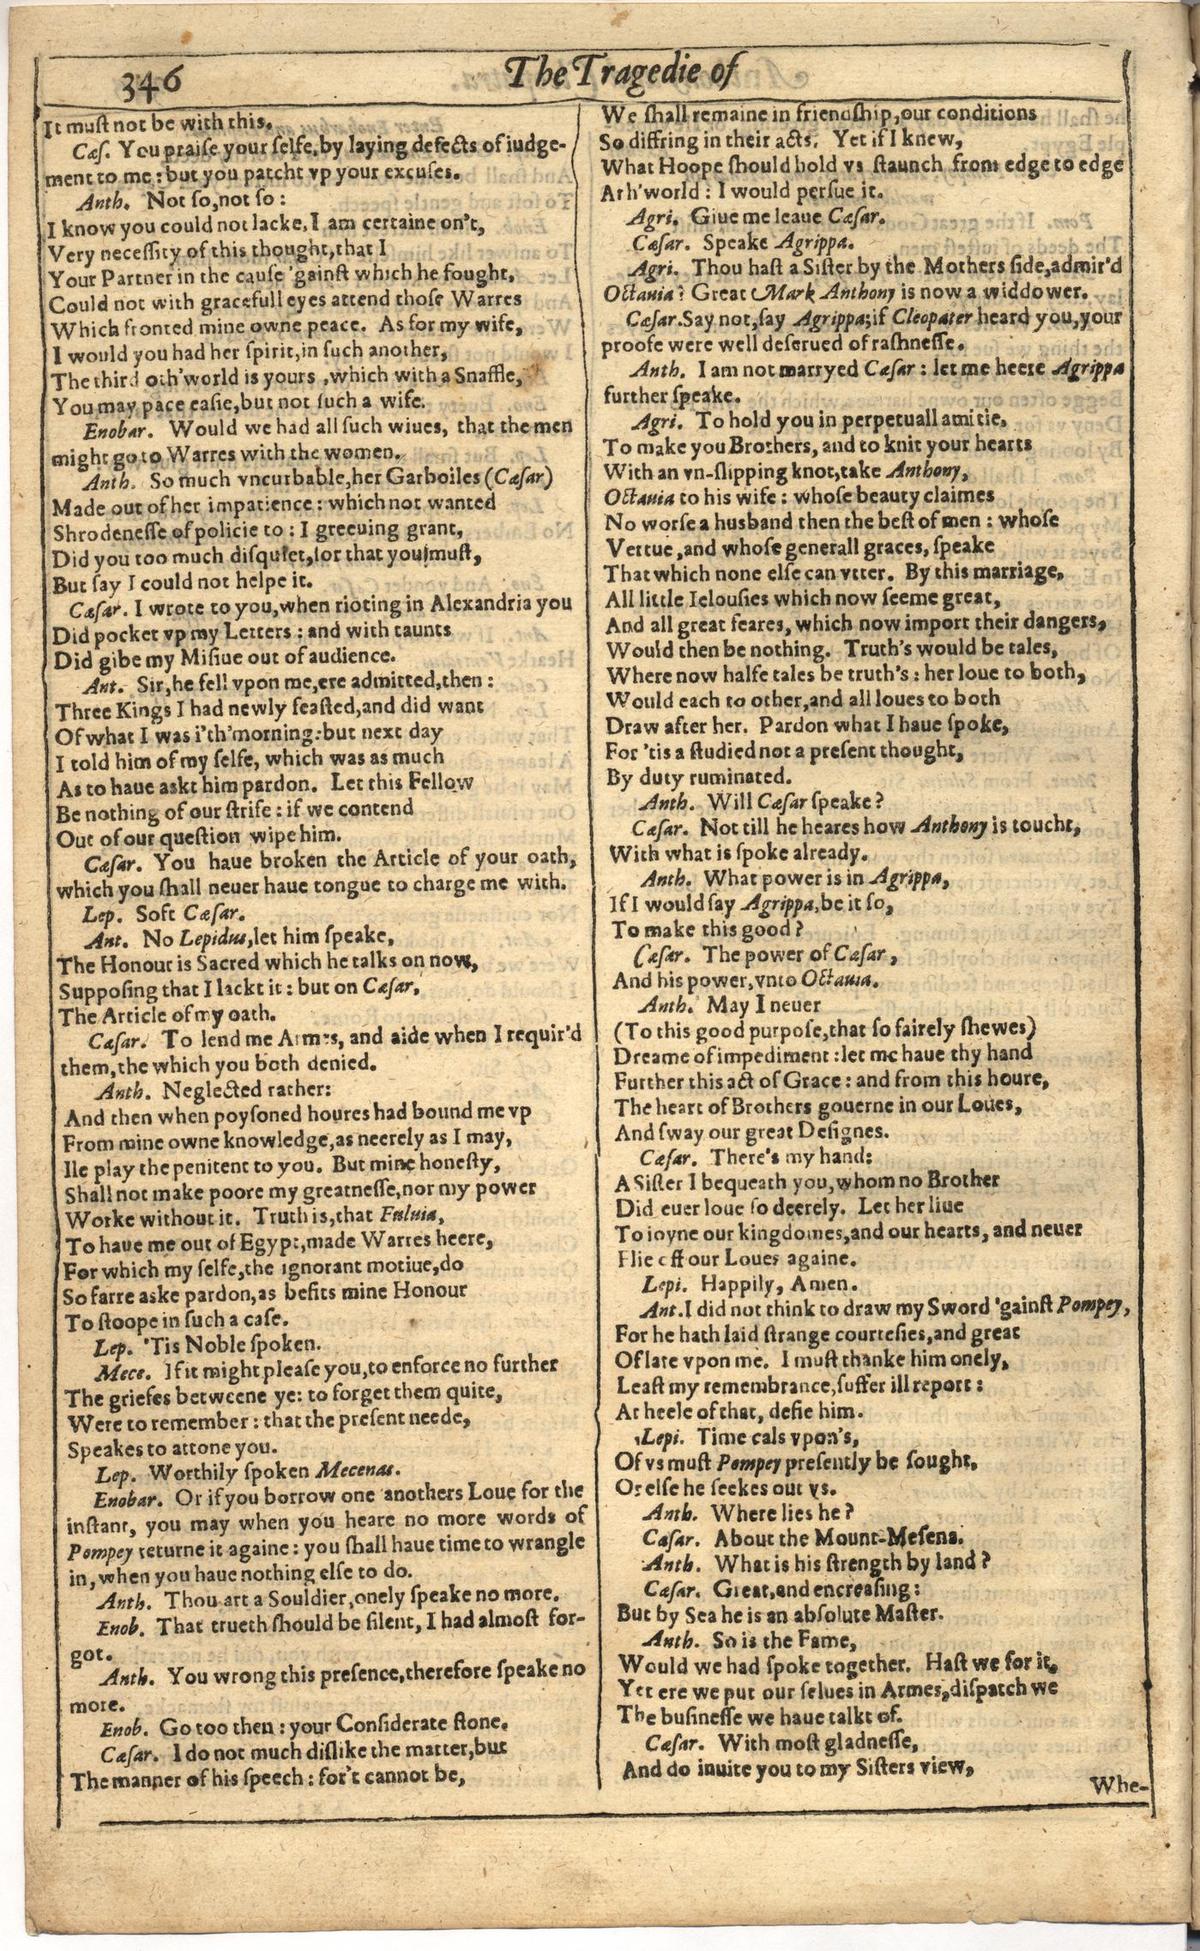 346
The Tragedie of
It muſt not be with this.
Cæſ. You praiſe your ſelfe, by laying defects of iudge-
ment to me: but you patcht vp your excuſes.
Anth. Not ſo, not ſo:
I know you could not lacke, I am certaine on't,
Very neceſſity of this thought, that I
Your Partner in the cauſe 'gainſt which he fought,
Could not with gracefull eyes attend thoſe Warres
Which fronted mine owne peace. As for my wife,
I would you had her ſpirit, in ſuch another,
The third oth'world is yours, which with a Snaffle,
You may pace eaſie, but not ſuch a wife.
Enobar. Would we had all ſuch wiues, that the men
might go to Warres with the women.
Anth. So much vncurbable, her Garboiles (Cæſar)
Made out of her impatience: which not wanted
Shrodeneſſe of policie to: I greeuing grant,
Did you too much diſquiet, for that you muſt,
But ſay I could not helpe it.
Cæſar. I wrote to you, when rioting in Alexandria you
Did pocket vp my Letters: and with taunts
Did gibe my Miſiue out of audience.
Ant. Sir, he fell vpon me, ere admitted, then:
Three Kings I had newly feaſted, and did want
Of what I was i'th'morning: but next day
I told him of my ſelfe, which was as much
As to haue askt him pardon. Let this Fellow
Be nothing of our ſtrife: if we contend
Out of our queſtion wipe him.
Cæſar. You haue broken the Article of your oath,
which you ſhall neuer haue tongue to charge me with.
Lep. Soft Cæſar.
Ant. No Lepidus, let him ſpeake,
The Honour is Sacred which he talks on now,
Suppoſing that I lackt it: but on Cæſar,
The Article of my oath.
Cæſar. To lend me Armes, and aide when I requir'd
them, the which you both denied.
Anth. Neglected rather:
And then when poyſoned houres had bound me vp
From mine owne knowledge, as neerely as I may,
Ile play the penitent to you. But mine honeſty,
Shall not make poore my greatneſſe, nor my power
Worke without it. Truth is, that Fuluia,
To haue me out of Egypt, made Warres heere,
For which my ſelfe, the ignorant motiue, do
So farre aske pardon, as befits mine Honour
To ſtoope in ſuch a caſe.
Lep. 'Tis Noble ſpoken.
Mece. If it might pleaſe you, to enforce no further
The griefes betweene ye: to forget them quite,
Were to remember: that the preſent neede,
Speakes to attone you.
Lep. Worthily ſpoken Mecenas.
Enobar. Or if you borrow one anothers Loue for the
inſtant, you may when you heare no more words of
Pompey returne it againe: you ſhall haue time to wrangle
in, when you haue nothing elſe to do.
Anth. Thou art a Souldier, onely ſpeake no more.
Enob. That trueth ſhould be ſilent, I had almoſt for-
got.
Anth. You wrong this preſence, therefore ſpeake no
more.
Enob. Go too then: your Conſiderate ſtone.
Cæſar. I do not much diſlike the matter, but
The manner of his ſpeech: for't cannot be,
We ſhall remaine in friendſhip, our conditions
So diffring in their acts. Yet if I knew,
What Hoope ſhould hold vs ſtaunch from edge to edge
Ath'world: I would perſue it.
Agri. Giue me leaue Cæſar.
Cæſar. Speake Agrippa.
Agri. Thou haſt a Siſter by the Mothers ſide, admir'd
Octauia? Great Mark Anthony is now a widdower.
Cæſar. Say not, ſay Agrippa; if Cleopater heard you, your
proofe were well deſerued of raſhneſſe.
Anth. I am not marryed Cæſar: let me heere Agrippa
further ſpeake.
Agri. To hold you in perpetuall amitie,
To make you Brothers, and to knit your hearts
With an vn-ſlipping knot, take Anthony,
Octauia to his wife: whoſe beauty claimes
No worſe a husband then the beſt of men: whoſe
Vertue, and whoſe generall graces, ſpeake
That which none elſe can vtter. By this marriage,
All little Ielouſies which now ſeeme great,
And all great feares, which now import their dangers,
Would then be nothing. Truth's would be tales,
Where now halfe tales be truth's: her loue to both,
Would each to other, and all loues to both
Draw after her. Pardon what I haue ſpoke,
For 'tis a ſtudied not a preſent thought,
By duty ruminated.
Anth. Will Cæſar ſpeake?
Cæſar. Not till he heares how Anthony is toucht,
With what is ſpoke already.
Anth. What power is in Agrippa,
If I would ſay Agrippa, be it ſo,
To make this good?
Cæſar. The power of Cæſar,
And his power, vnto Octauia.
Anth. May I neuer
(To this good purpoſe, that ſo fairely ſhewes)
Dreame of impediment: let me haue thy hand
Further this act of Grace: and from this houre,
The heart of Brothers gouerne in our Loues,
And ſway our great Deſignes.
Cæſar. There's my hand:
A Siſter I bequeath you, whom no Brother
Did euer loue ſo deerely. Let her liue
To ioyne our kingdomes, and our hearts, and neuer
Flie off our Loues againe.
Lepi. Happily, Amen.
Ant. I did not think to draw my Sword 'gainſt Pompey,
For he hath laid ſtrange courteſies, and great
Of late vpon me. I muſt thanke him onely,
Leaſt my remembrance, ſuffer ill report:
At heele of that, defie him.
Lepi. Time cals vpon's,
Of vs muſt Pompey preſently be ſought,
Or elſe he ſeekes out vs.
Anth. Where lies he?
Cæſar. About the Mount-Meſena.
Anth. What is his ſtrength by land?
Cæſar. Great, and encreaſing:
But by Sea he is an abſolute Maſter.
Anth. So is the Fame,
Would we had ſpoke together. Haſt we for it,
Yet ere we put our ſelues in Armes, diſpatch we
The buſineſſe we haue talkt of.
Cæſar. With moſt gladneſſe,
And do inuite you to my Siſters view,
Whe-